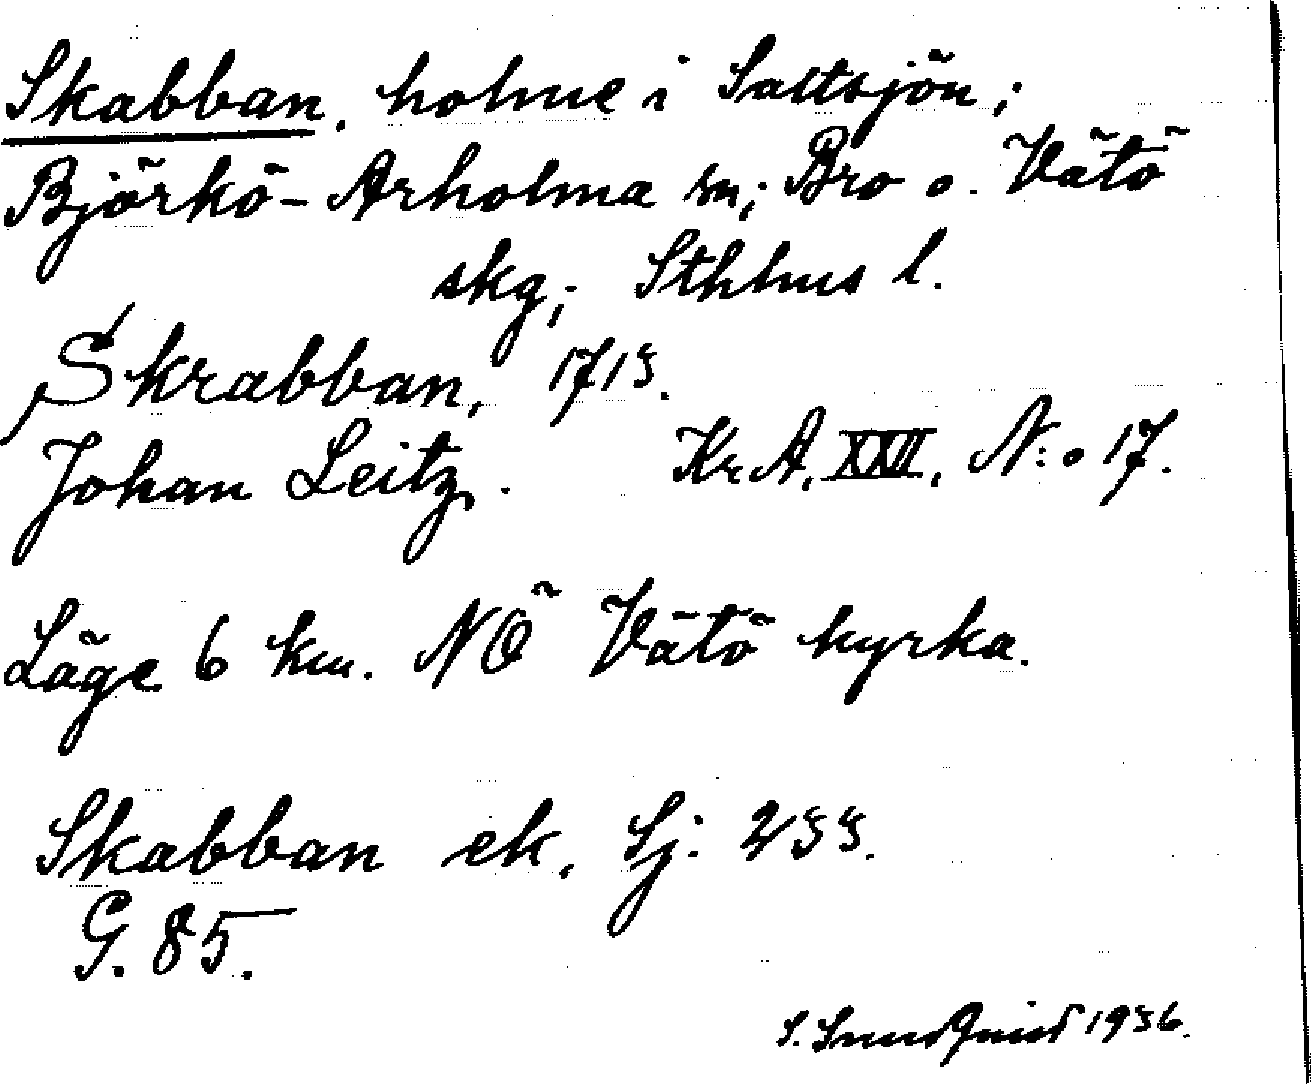 Skabban, holme i Saltsjön;
Björkö-Arholma sn; Bro o. Vätö
skg; Sthlms l.
Skrabban, 1715.
Johan Leitz. Kr. A. XXII. N:o 17.
Läge 6 km. NÖ Vätö kyrka.
Skabban ek. Sj: 255.
G. 85.
S. 1936.